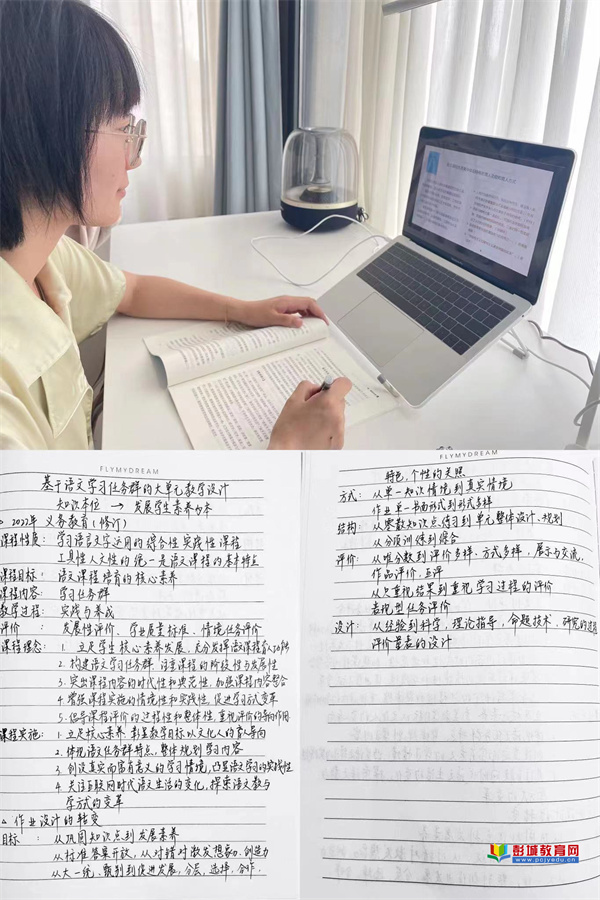 FLYMYDREAM
基于语文学习任务群的大单元教学设计
知识本位 → 发展学生素养为本
2022年 义务教育(修订)
课程性质: 学习语言文字运用的综合性实践性课程
工具性人文性的统一是语文课程的基本特点
课程目标: 语文课程培育的核心素养
课程内容: 学习任务群
教学过程: 实践与养成
评价: 发展性评价、学业质量标准、情境任务评价
课程理念: 1. 立足学生核心素养发展,充分发挥语文课程育人功能
2. 构建语文学习任务群,注重课程的阶段性与发展性
3. 突出课程内容的时代性和典范性,加强课程内容整合
4. 增强课程实施的情境性和实践性,促进学习方式变革
5. 倡导课程评价的过程性和整体性,重视评价的导向作用
课程实施: 1. 立足核心素养,彰显教学目标以文化人的育人导向
2. 体现语文任务群特点,整体规划学习内容
3. 创设真实而富有意义的学习情境,凸显语文学习的实践性
4. 关注互联网时代语文生活的变化,探索语文教与
学方式的变革
作业设计的转变
目标: 从巩固知识点到发展素养
从标准答案开放,从对错对激发想象力、创造力
从大一统、甄别到促进发展,分层、选择、合作,
FLYMYDREAM
特色,个性的关照
方式: 从单一知识情境到真实情境
作业单一书面形式到形式多样
结构: 从零散知识点练习到单元整体设计、规划
从分项训练到综合
评价: 从唯分数到评价多样、方式多样,展示与交流,
作品评价,互评
从只重视结果到重视学习过程的评价
表现型任务评价
设计: 从经验到科学,理论指导,命题技术,研究的进程
评价量表的设计
彭城教育网
www.pcjyedu.cn